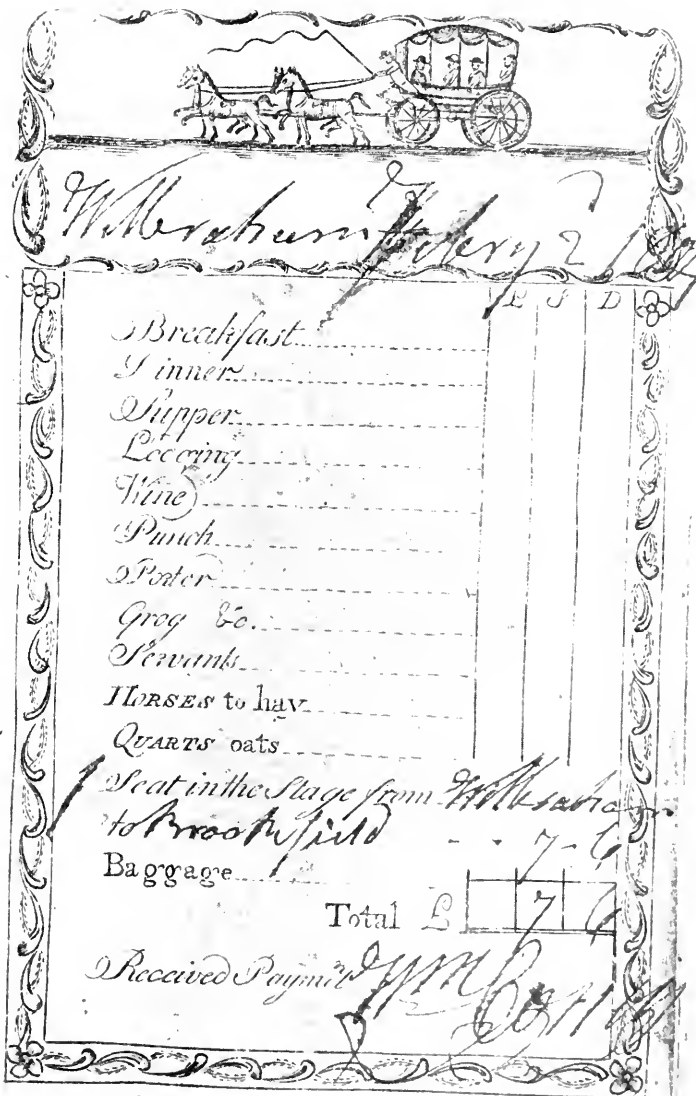 Wilbraham Febry 2
L S D
Breakfast
Dinner
Supper
Lodging
Wine
Punch
Porter
Grog &c.
Servants
HORSES to hay
QUARTS oats
1 Seat in the Stage from Wilbraham
to Brookfield - - 7 - 6
Baggage
Total £ 7 6
Received Paymt Wm